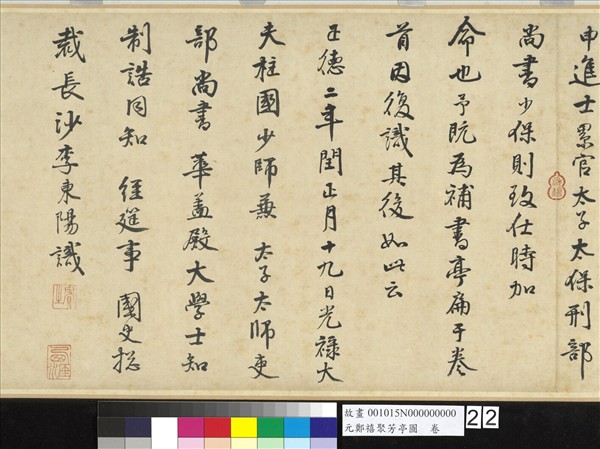 申進士累官太子太保刑部
尚書少保則致仕時加
命也予既為補書亭扁于卷
首因復識其後如此云
正德二年閏正月十九日光祿大
夫柱國少師兼 太子太師吏
部尚書 華蓋殿大學士知
制誥同知 經筵事 國史總
裁長沙李東陽識
故畫 001015N000000000
元鄭禧聚芳亭圖 卷
22